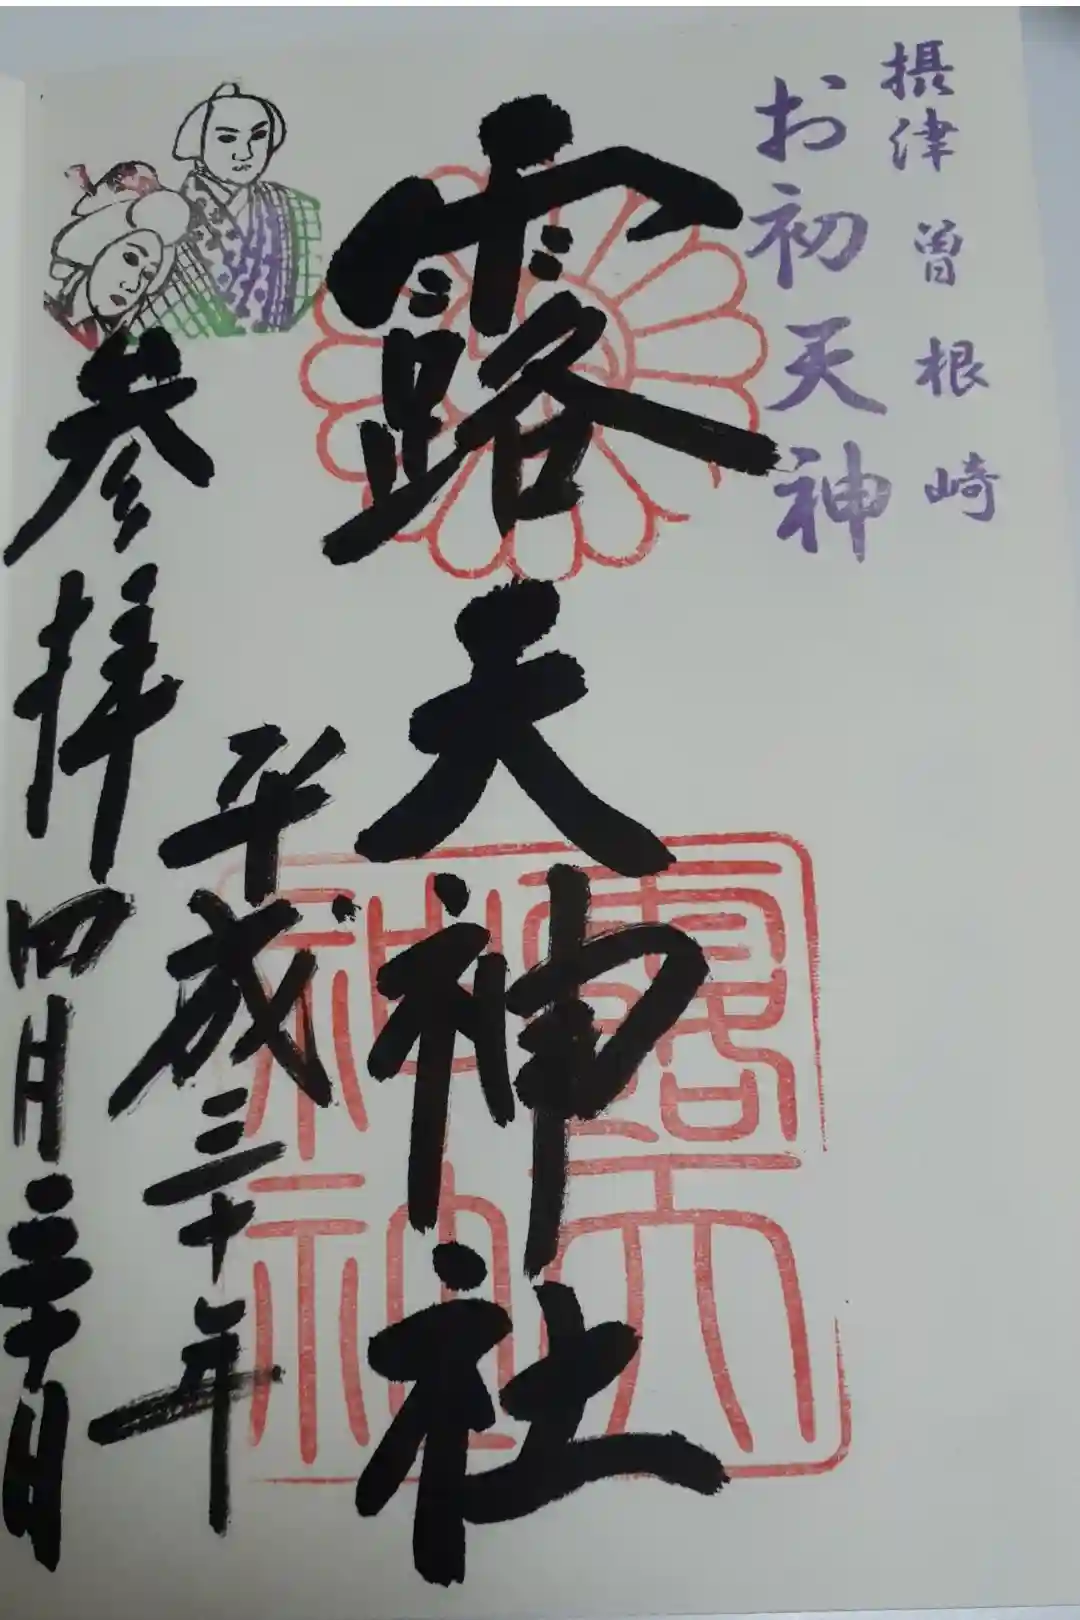 摂津 曽根崎
お初天神
露天神社
平成三十年
参拝 四月三十日